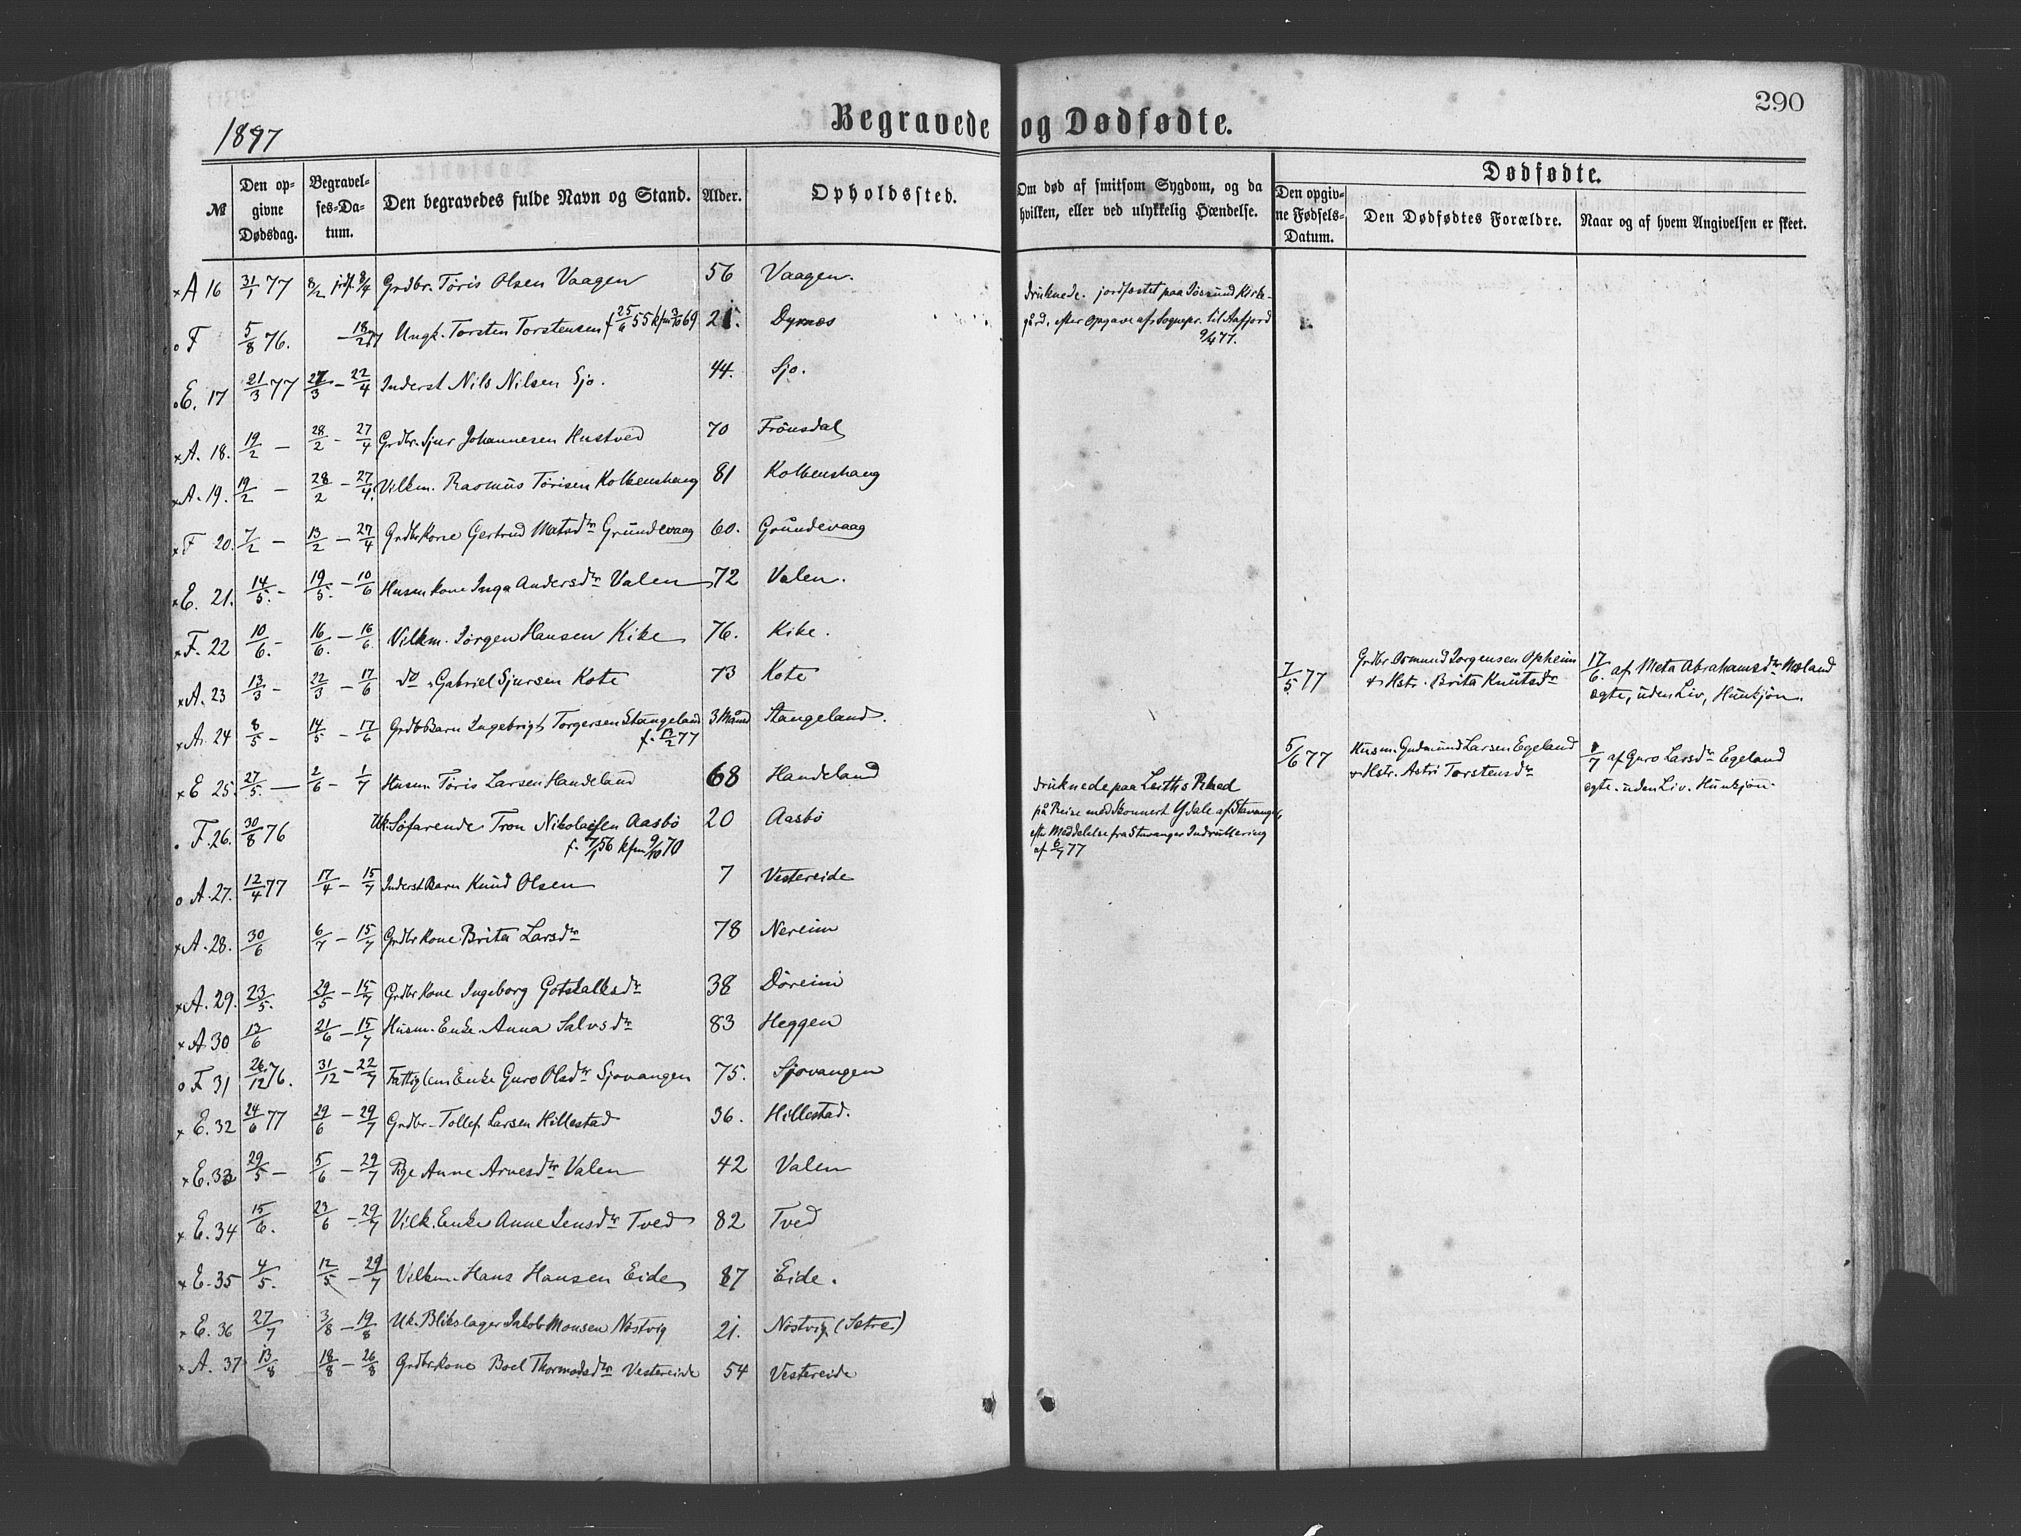 1897
Begravede og Dødfødte.
290
№
Den opgivne Dødsdag.
Begravelses-Datum.
Den begravedes fulde Navn og Stand.
Alder.
Opholdssted.
Om død af smitsom Sygdom, og da hvilken, eller ved ulykkelig Hændelse.
Dødfødte.
Den opgivne Fødsels-Datum.
Den Dødfødtes Forældre.
Naar og af hvem Angivelsen er skeet.
x A 16 31/1 77 8/2 jrdf. 8/4 Grdbr. Töris Olsen Vaagen 56 Vaagen. druknede. jordfæstet paa Jössund Kirke-
o F 5/8 76. Ungk. Torsten Torstensen f 25/6 55 kfm 69 21. Dymæs gård, efter Opgave af Sognepr. til Aafjord
9/4 77.
o E. 17 21/3 77 27/3 – 22/4 Inderst Nils Nilsen Sjo. 44. Sjo.
x A. 18. 19/2 – 28/2 – 27/4 Grdbr. Sjur Johannesen Hustved 70 Frönsdal
x A. 19. 19/2 – 28/2 – 27/4. Vilkm. Rasmus Törisen Kolbenshaug 81 Kolbenshaug
x F 20. 7/2 – 13/2 – 27/4 Grdbrkone Gertrud Matsdtr Grundevaag 60. Grundevaag
x E. 21. 14/5. – 19/5. – 10/6 Husm kone Inga Andersdtr Valen 72 Valen.
x F. 22 10/6. – 16/6. – 16/6. Vilkm. Jörgen Hansen Kike 76. Kike.
x A. 23 13/3 – 22/3 – 17/6 do Gabriel Sjursen Kote 73 Kote
7/5 77 Grdbr Osmund Jorgensen Opheim 17/6. af Meta Abrahamsdtr Mæland
& Hstr. Brita Knutsdtr ægte, uden Liv, Hunkjøn.
x A. 24 8/5 – 14/5 – 17/6 Grdbr Barn Ingebrigt Torgersen Stangeland 3 Månd Stangeland.
f. 13/2 77
5/6 77 Husm. Gudmund Larsen Egeland 1/7 af Guro Larsdtr Egeland
& Hstr. Astri Torstensdtr ægte. uden Liv. Hunkjøn.
x E 25. 27/5. – 2/6 – 1/7 Husm Töris Larsen Handeland 68 Handeland
. F. 26. 30/8 76 Uk. Søfarende Tron Nikolaisen Aasbö 20 Aasbö
f. 7/1 56 kfm 9/10 70
druknede paa Leiths Rhed
på Reise med Skonnert Ydale af Stavanger,
eftr Meddelelse fra Stavanger Indrullering
af 6/7 77
o A. 27. 12/4 77 17/4 – 15/7 Inderst Barn Knud Olsen 7 Vestereide
x A. 28. 30/6 6/7 – 15/7 Grdbr kone Brita Larsdtr 78 Nereim
x A. 29. 23/5. 29/5 – 15/7 Grdbr Kone Ingeborg Gotskalksdtr 38 Döreim
x A 30 13/6 21/6 – 15/7 Husm. Enke Anna Salvsdtr 83 Heggen
o F 31 26/12 76. 31/12 – 22/7 Fattiglem Enke Guro Olsdtr Sjovangen 75. Sjovangen
x E. 32 24/6 77 29/6 – 29/7 Grdbr. Tollef Larsen Hillestad 36. Hillestad.
x E. 33 29/5 – 5/6 – 29/7 Pige Anne Arnesdtr Valen 42 Valen
x E. 34 15/6. 23/6 – 29/7 Vilk. Enke Anne Jensdtr Tved 82 Tved
x E. 35 4/5. 12/5 – 29/7 Vilkm. Hans Hansen Eide 87 Eide.
x E. 36 27/7 3/8 – 19/8 Uk. Blikslager Jakob Monsen Nostvig 21. Nostvig (Sætre)
x A. 37 13/8 18/8 – 26/8 Grdbrkone Boel Thormodsdtr Vestereide 54 Vestereide